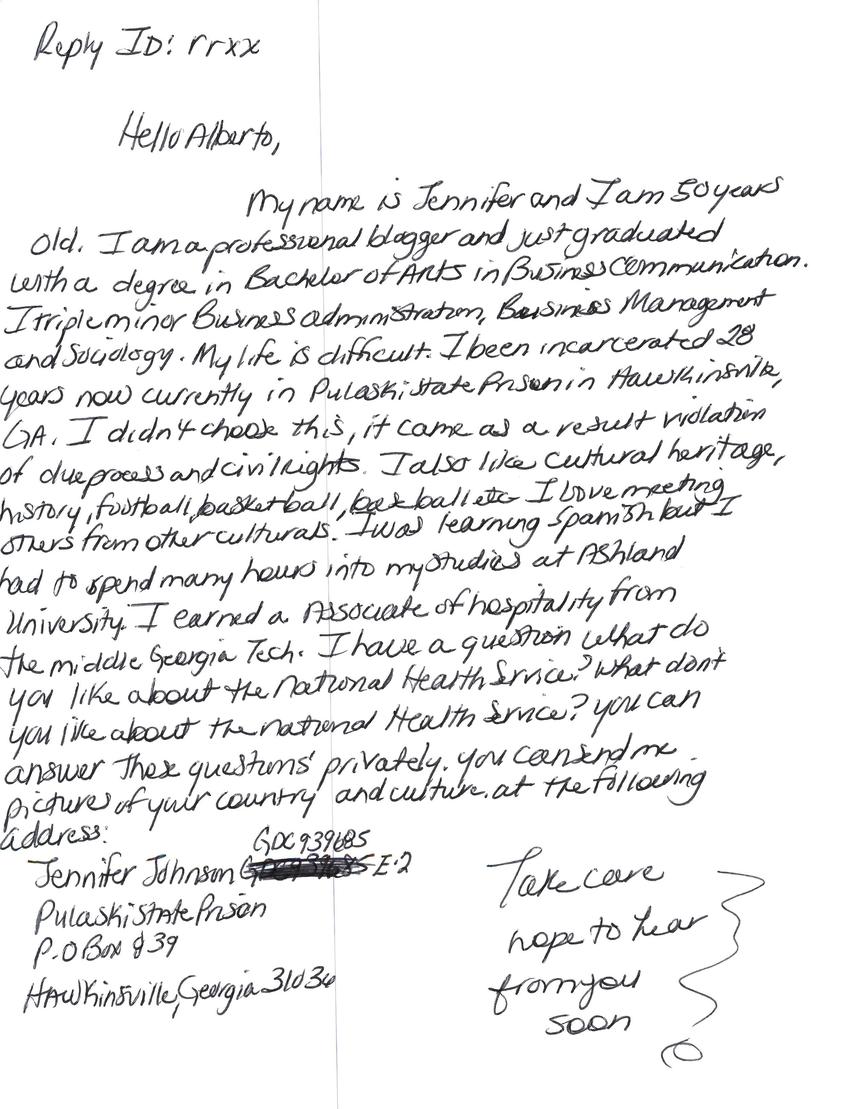 Reply ID: rrxx
Hello Alberto,
My name is Jennifer and I am 50 years
old. I am a professional blogger and just graduated
with a degree in Bachelor of Arts in Business Communication.
I triple minor Business administration, Business Management
and Sociology. My life is difficult. I been incarcerated 28
years now currently in Pulaski State Prison in Hawkinsville,
GA. I didn't choose this, it came as a result violation
of due process and civil rights. I also like cultural heritage,
history, football, basketball, baseball etc I love meeting
others from other culturals. I was learning Spanish but I
had to spend many hours into my studies at Ashland
University. I earned a Associate of hospitality from
the middle Georgia Tech. I have a question what do
you like about the National Health Service? What don't
you like about the national Health Service? you can
answer these questions privately. you can send me
pictures of your country and culture at the following
address:
GDC939685
Jennifer Johnson E-2
Pulaski State Prison
P.O Box 839
Hawkinsville, Georgia 31036
Take care
hope to hear
from you
soon